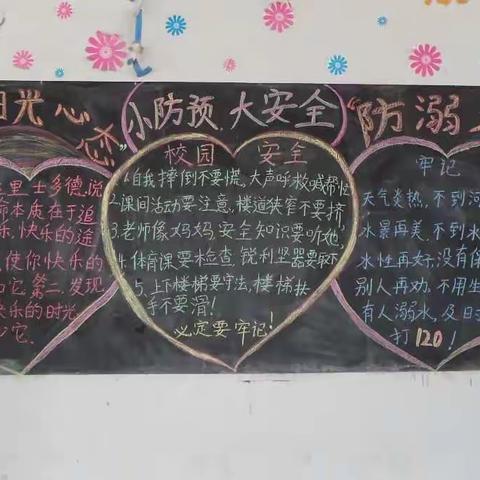 阳光心态
里士多德说
命本质在于追
乐,快乐的途
使你快乐的
它,第二,发现
快乐的时光
少它.
小防预,大安全
校园 安全
1.自我摔倒不要慌,大声呼救喊帮忙
2.课间活动要注意,楼道狭窄不要挤
3.老师像妈妈,安全知识要听她
4.体育课要检查,锐利坚器要取下
5.上下楼梯要守法,楼梯扶
手不要滑!
必定要牢记!
防溺
牢记
天气炎热,不到河
水景再美,不到水
水性再好,没有保
别人再劝,不用生
有人溺水,及日
打120!